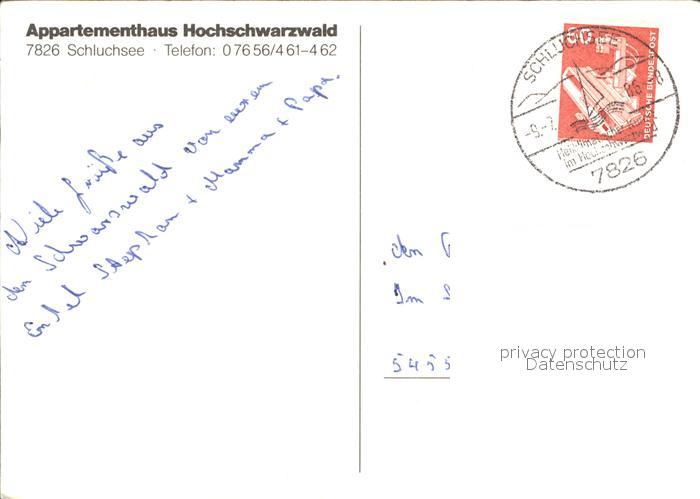 Appartementhaus Hochschwarzwald
7826 Schluchsee · Telefon: 0 76 56/4 61–4 62
Viele Grüße aus
den Schwarswald von euren
Enkel Stephan + Mamma + Papa.
SCHLUCHSEE
-9.-7.
-8
7826
60
DEUTSCHE BUNDESPOST
den
Im
5455
privacy protection
Datenschutz